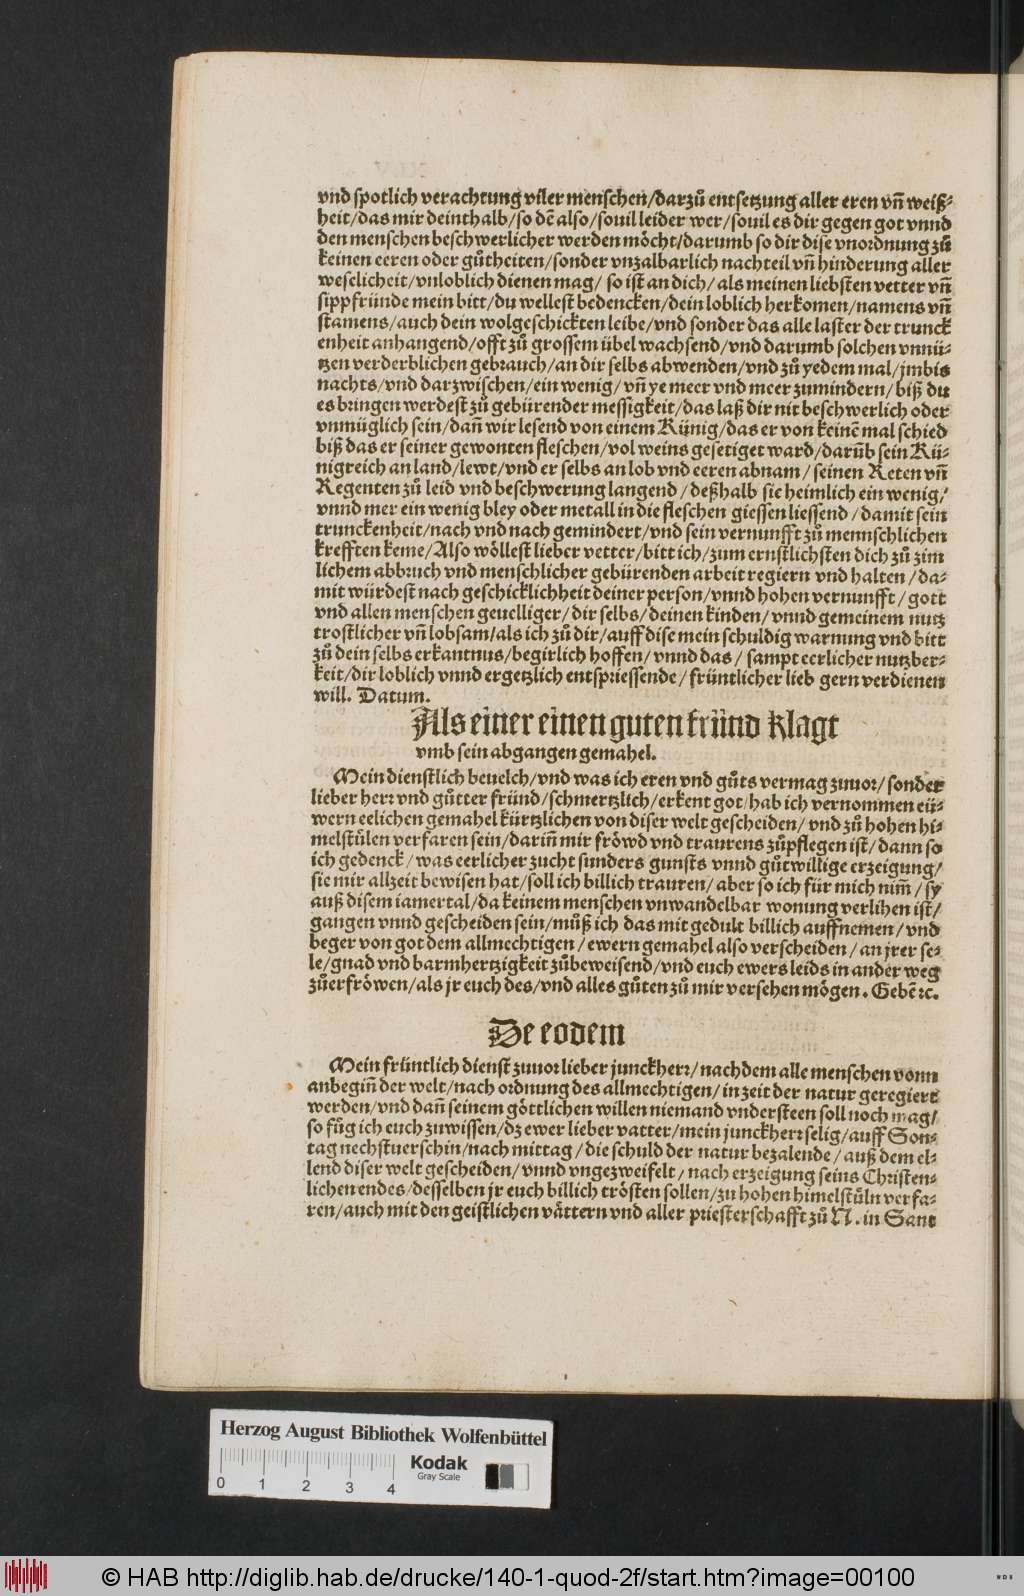 vnd spotlich verachtung viler menschen/darzů entsetzung aller eren vñ weiß⸗
heit/das mir deinthalb/so dē also/souil leider wer/souil es dir gegen got vnnd
den menschen beschwerlicher werden möcht/darumb so dir dise vnordnung zů
keinen eeren oder gůtheiten/sonder vnzalbarlich nachteil vñ hinderung aller
weselicheit/vnloblich dienen mag/ so ist an dich/als meinen liebsten vetter vñ
sippfründe mein bitt/du wellest bedencken/dein loblich herkomen/namens vñ
stamens/auch dein wolgeschickten leibe/vnd sonder das alle laster der trunck
enheit anhangend/offt zů grossem übel wachsend/vnd darumb solchen vnnü⸗
tzen verderblichen gebrauch/an dir selbs abwenden/vnd zů yedem mal/jmbis
nachts/vnd darzwischen/ein wenig/ vñ ye meer vnd meer zumindern/ biß du
es bringen werdest zů gebürender messigkeit/das laß dir nit beschwerlich oder
vnmüglich sein/dañ wir lesend von einem Künig/das er von keinē mal schied
biß das er seiner gewonten fleschen/vol weins gesetiget ward/darūb sein Kü⸗
nigreich an land/lewt/vnd er selbs an lob vnd eeren abnam/ seinen Reten vñ
Regenten zů leid vnd beschwerung langend/deßhalb sie heimlich ein wenig/
vnnd mer ein wenig bley oder metall in die fleschen giessen liessend/damit sein
trunckenheit/nach vnd nach gemindert/vnd sein vernunfft zů mennschlichen
krefften keme/Also wöllest lieber vetter/bitt ich/zum ernstlichsten dich zů zim
lichem abbruch vnd menschlicher gebürenden arbeit regiern vnd halten/da⸗
mit würdest nach geschicklichheit deiner person/vnnd hohen vernunfft/gott
vnd allen menschen geuelliger/dir selbs/deinen kinden/vnnd gemeinem nutz
trostlicher vñ lobsam/als ich zů dir/auff dise mein schuldig warnung vnd bitt
zů dein selbs erkantnus/begirlich hoffen/ vnnd das/ sampt eerlicher nutzber⸗
keit/dir loblich vnnd ergetzlich entspriessende/früntlicher lieb gern verdienen
will. Datum.
Als einer einen guten fründ klagt
vmb sein abgangen gemahel.
Mein dienstlich beuelch/vnd was ich eren vnd gůts vermag zuuor/sonder
lieber herr vnd gůtter fründ/schmertzlich/erkent got/hab ich vernommen eü⸗
wern eelichen gemahel kürtzlichen von diser welt gescheiden/ vnd zů hohen hi⸗
melstůlen verfaren sein/dariñ mir fröwd vnd traurens zůpflegen ist/dann so
ich gedenck/was eerlicher zucht sunders gunsts vnnd gůtwillige erzeigung/
sie mir allzeit bewisen hat/soll ich billich trauren/aber so ich für mich nim̃/sy
auß disem iamertal/da keinem menschen vnwandelbar wonung verlihen ist/
gangen vnnd gescheiden sein/můß ich das mit gedult billich auffnemen/vnd
beger von got dem allmechtigen/ewern gemahel also verscheiden/an jrer se⸗
le/gnad vnd barmhertzigkeit zůbeweisend/vnd euch ewers leids in ander weg
zůerfröwen/als jr euch des/vnd alles gůten zů mir versehen mögen. Gebē ꝛc.
De eodem
Mein früntlich dienst zuuor lieber junckherr/nachdem alle menschen vonn
anbegiñ der welt/nach ordnung des allmechtigen/in zeit der natur geregiert
werden/vnd dañ seinem göttlichen willen niemand vndersteen soll noch mag/
so füg ich euch zuwissen/dz ewer lieber vatter/mein junckherr selig/auff Son⸗
tag nechstuerschin/nach mittag/die schuld der natur bezalende/auß dem el⸗
lend diser welt gescheiden/vnnd vngezweifelt/nach erzeigung seins Christen⸗
lichen endes/desselben jr euch billich trösten sollen/zu hohen himelstůln verfa⸗
ren/auch mit den geistlichen vättern vnd aller priesterschafft zů N. in Sant
Herzog August Bibliothek Wolfenbüttel
Kodak
Gray Scale
0 1 2 3 4
© HAB http://diglib.hab.de/drucke/140-1-quod-2f/start.htm?image=00100